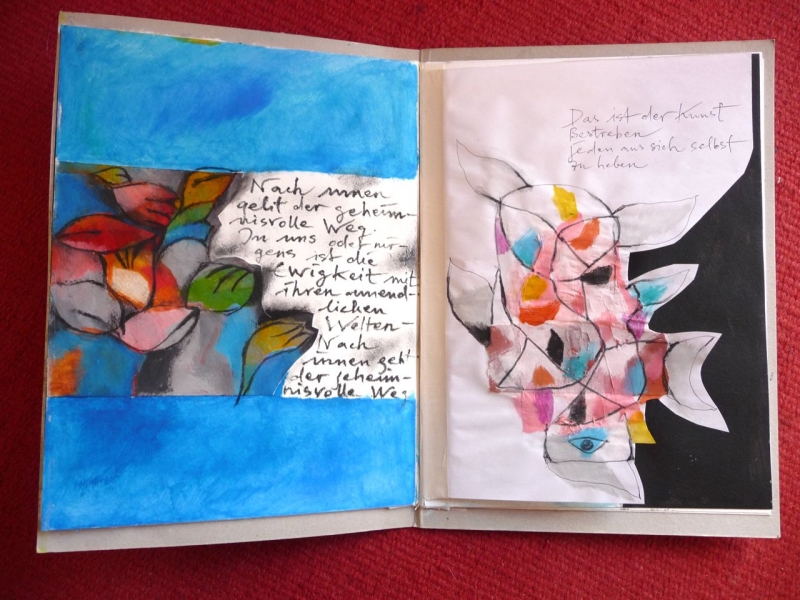 Nach innen
geht der geheim-
nisvolle Weg.
In uns oder nir-
gens ist die
Ewigkeit mit
ihren unend-
lichen
Welten-
Nach
innen geht
der geheim-
nisvolle Weg
Das ist der Kunst
Bestreben
jeden aus sich selbst
zu heben